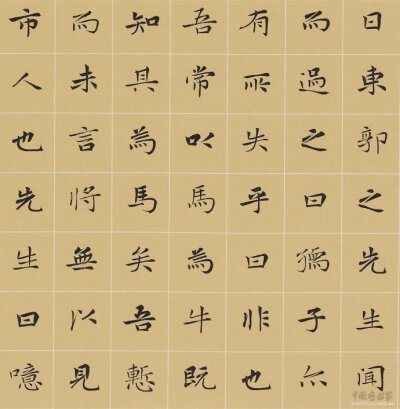 日東郭之先生闻
而過之曰獳子亦
有所失乎曰非也
吾常以馬為牛既
知其為馬矣吾慙
而未言將無以見
市人也先生曰噫